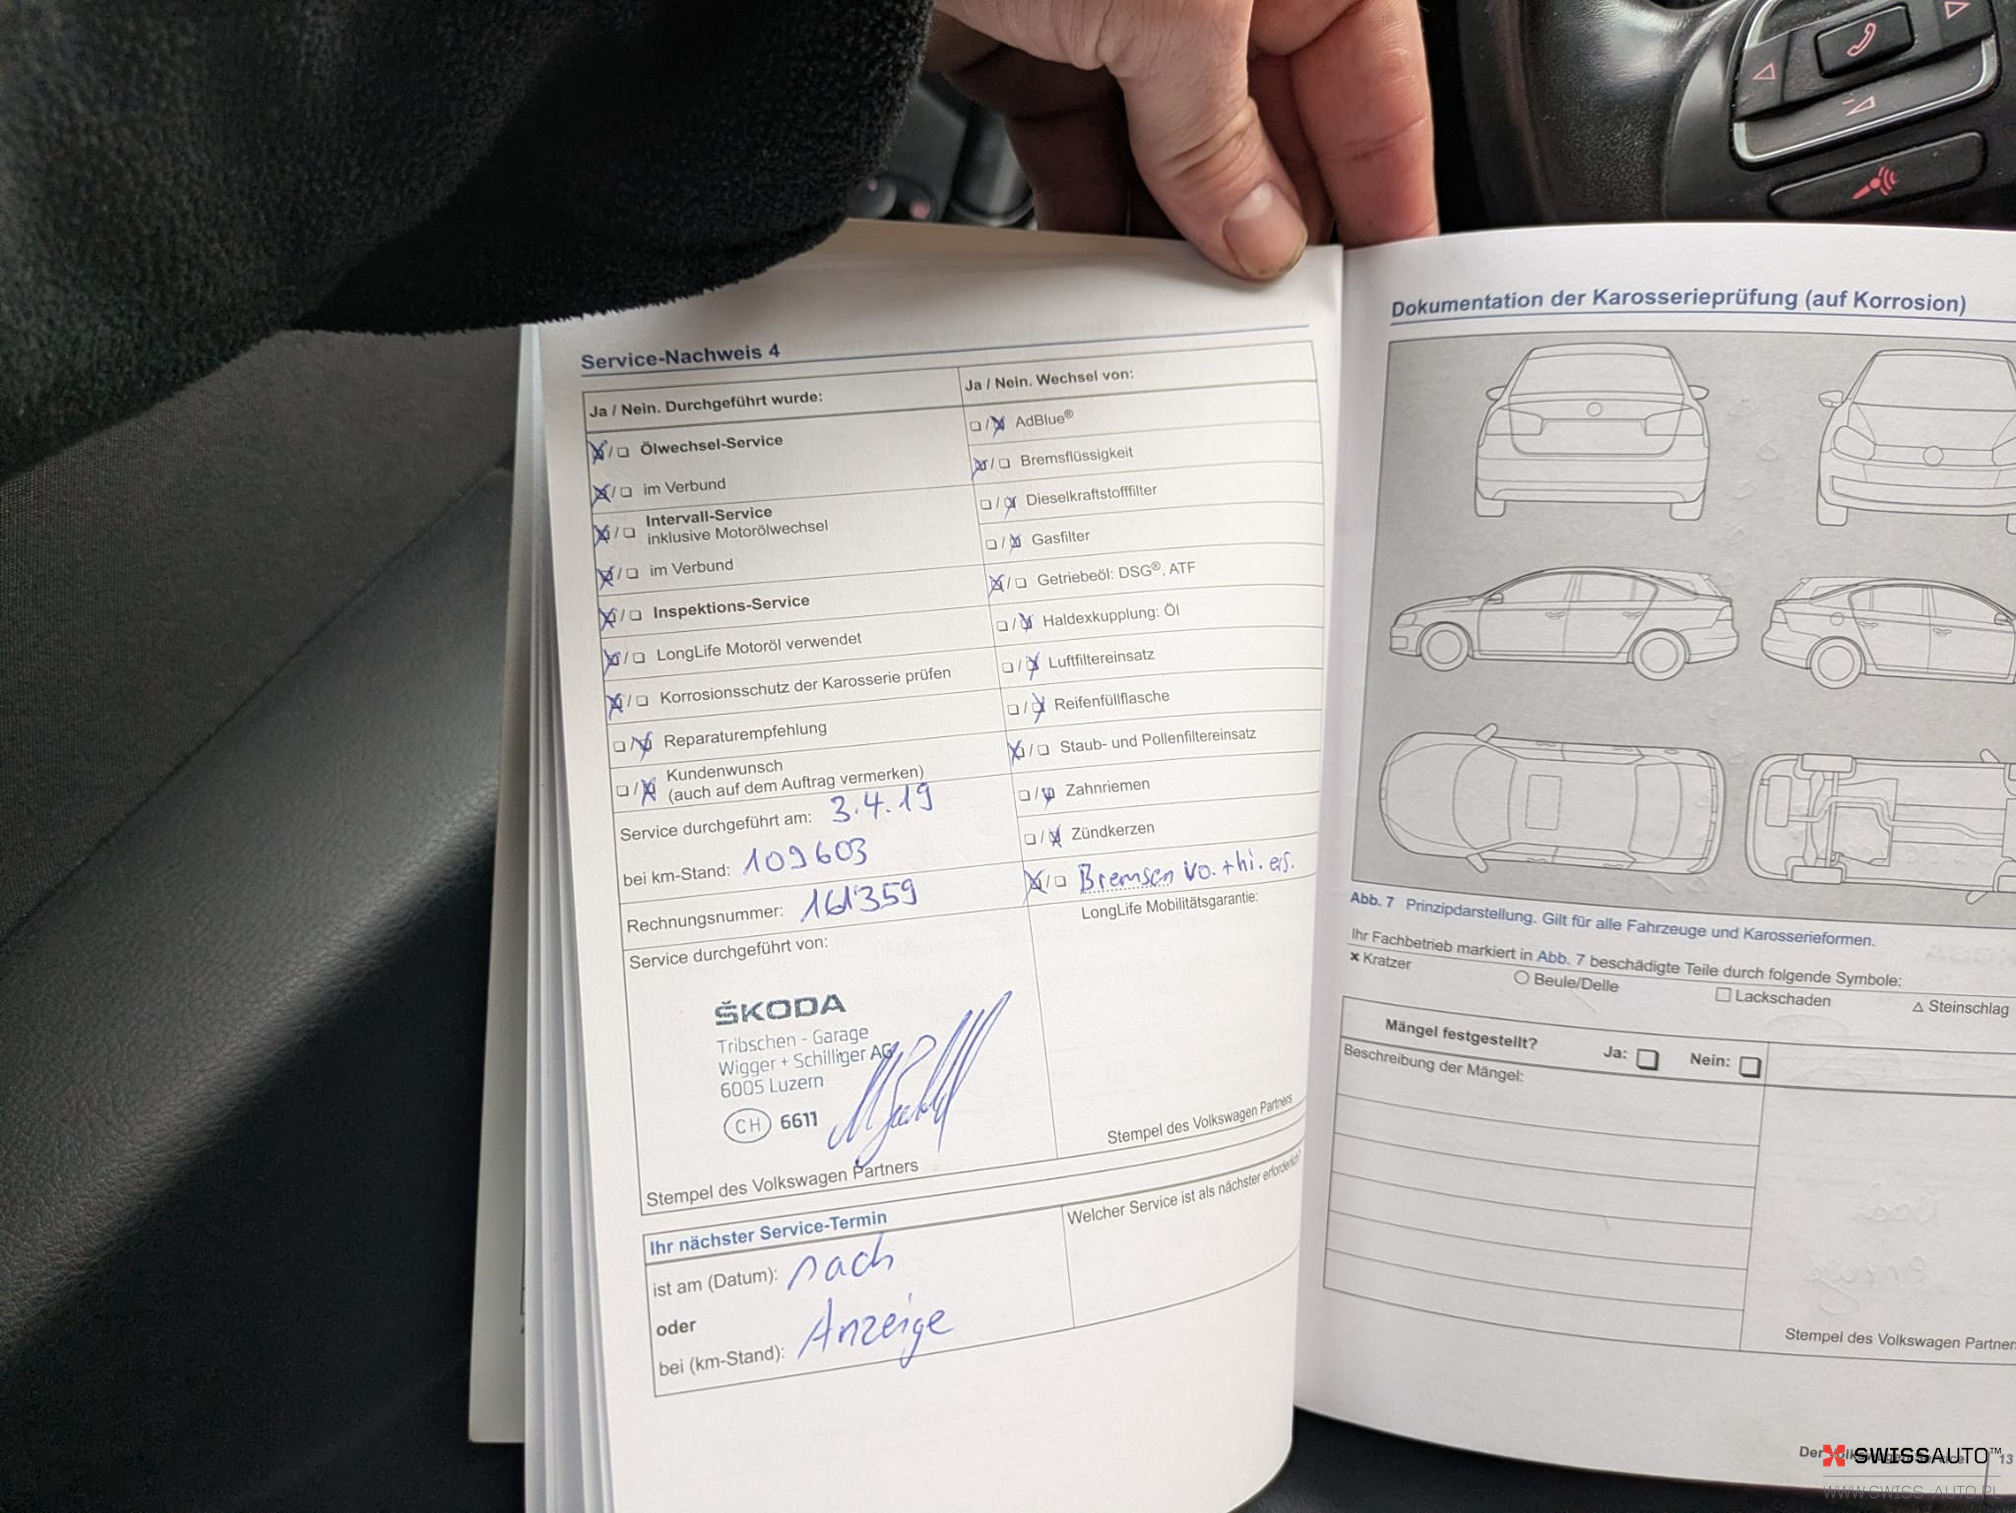 Service-Nachweis 4
Ja / Nein. Durchgeführt wurde:
Ölwechsel-Service
im Verbund
Intervall-Service
inklusive Motorölwechsel
im Verbund
Inspektions-Service
LongLife Motoröl verwendet
Korrosionsschutz der Karosserie prüfen
Reparaturempfehlung
Kundenwunsch
(auch auf dem Auftrag vermerken)
Service durchgeführt am: 3.4.19
bei km-Stand: 109603
Rechnungsnummer: 161359
Service durchgeführt von:
ŠKODA
Tribschen - Garage
Wigger + Schilliger AG
6005 Luzern
CH 6611
Stempel des Volkswagen Partners
Ja / Nein. Wechsel von:
AdBlue®
Bremsflüssigkeit
Dieselkraftstofffilter
Gasfilter
Getriebeöl: DSG®, ATF
Haldexkupplung: Öl
Luftfiltereinsatz
Reifenfüllflasche
Staub- und Pollenfiltereinsatz
Zahnriemen
Zündkerzen
Bremsen vo. + hi. ers.
LongLife Mobilitätsgarantie:
Stempel des Volkswagen Partners
Ihr nächster Service-Termin
ist am (Datum): nach
oder
bei (km-Stand): Anzeige
Welcher Service ist als nächster erforderlich?
Dokumentation der Karosserieprüfung (auf Korrosion)
Abb. 7 Prinzipdarstellung. Gilt für alle Fahrzeuge und Karosserieformen.
Ihr Fachbetrieb markiert in Abb. 7 beschädigte Teile durch folgende Symbole:
× Kratzer
○ Beule/Delle
□ Lackschaden
△ Steinschlag
Mängel festgestellt? Ja: Nein:
Beschreibung der Mängel:
Stempel des Volkswagen Partners
13
SWISSAUTO™
WWW.SWISS-AUTO.PL